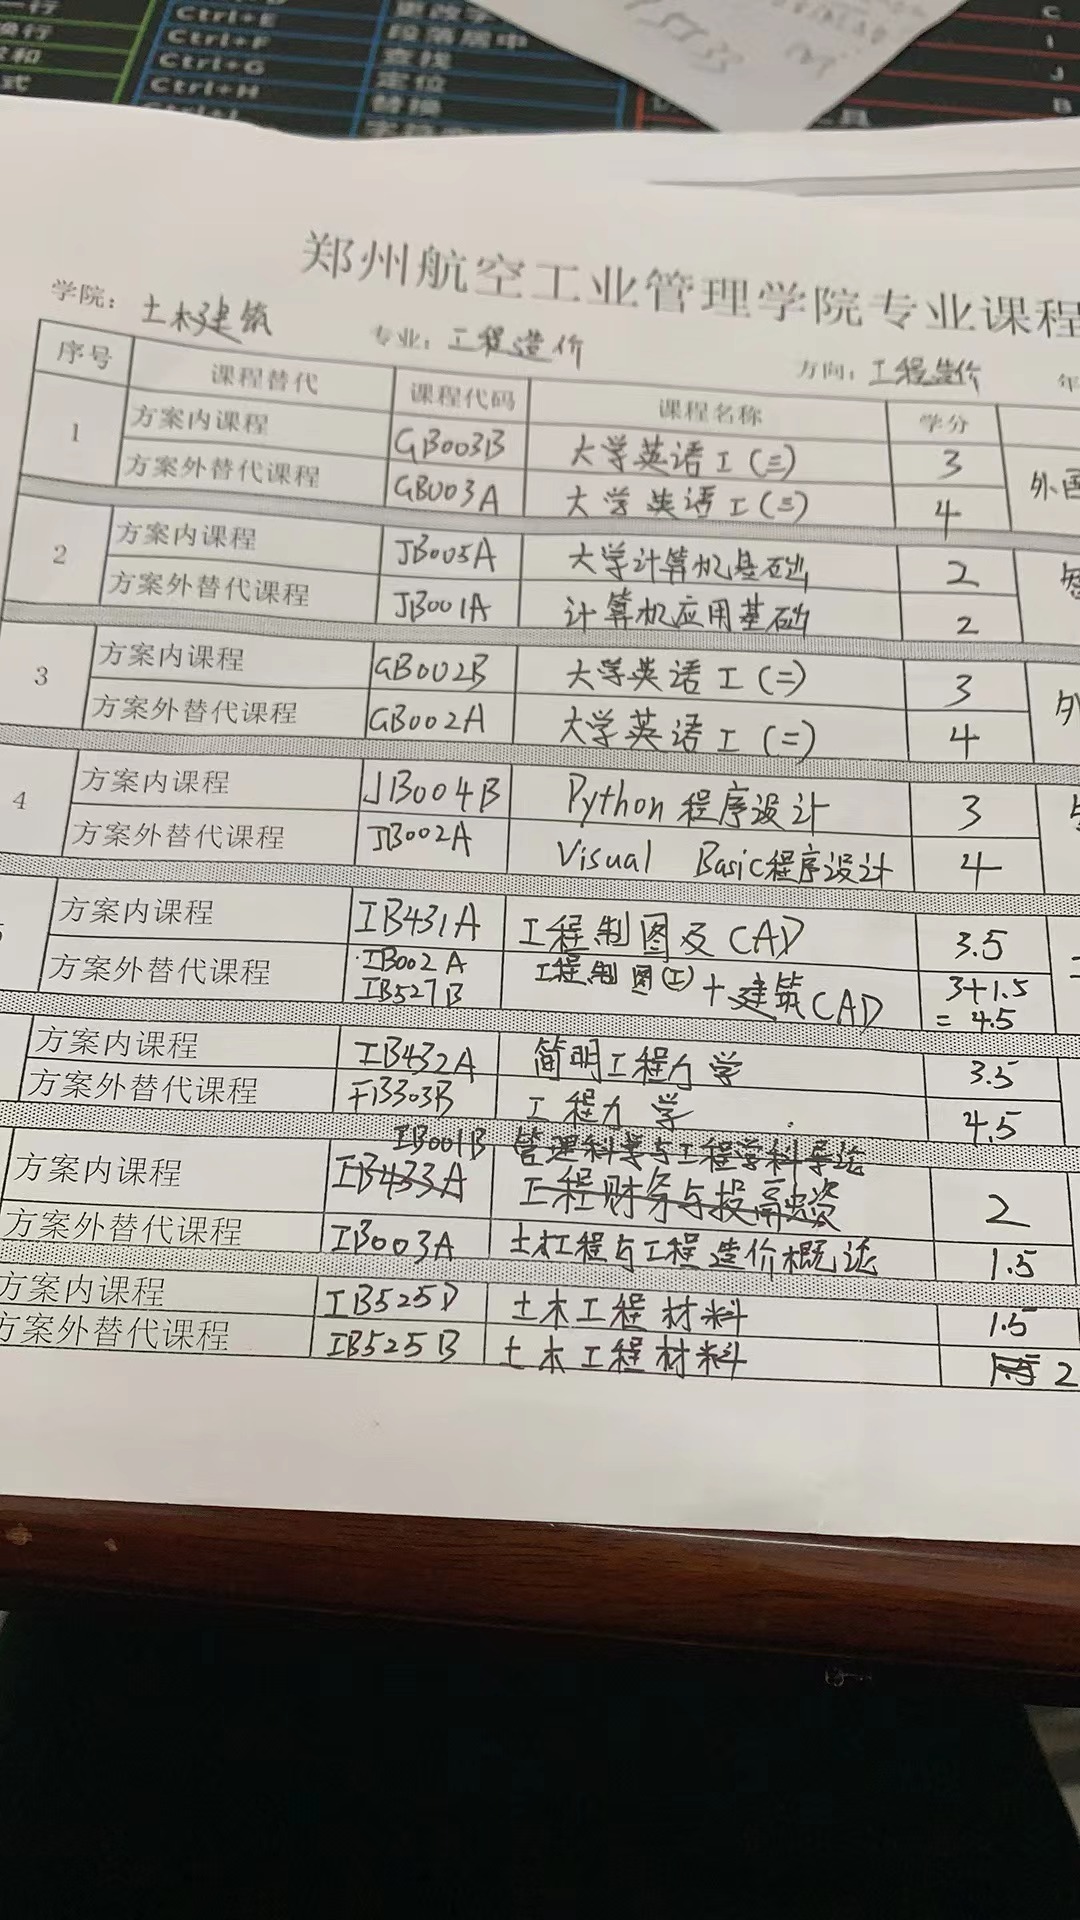 Ctrl+E 段落居中
Ctrl+F 查找
Ctrl+G 定位
Ctrl+H 替换
郑州航空工业管理学院专业课程
学院：土木建筑 专业：工程造价 方向：工程造价 年
序号 课程替代 课程代码 课程名称 学分
1 方案内课程 GB003B 大学英语I(三) 3
方案外替代课程 GB003A 大学英语I(三) 4
2 方案内课程 JB005A 大学计算机基础 2
方案外替代课程 JB001A 计算机应用基础 2
3 方案内课程 GB002B 大学英语I(二) 3 外
方案外替代课程 GB002A 大学英语I(二) 4
4 方案内课程 JB004B Python程序设计 3
方案外替代课程 JB002A Visual Basic程序设计 4
方案内课程 IB431A 工程制图及CAD 3.5
方案外替代课程 IB002A IB527B 工程制图(I)+建筑CAD 3+1.5=4.5
方案内课程 IB432A 简明工程力学 3.5
方案外替代课程 FB303B 工程力学 4.5
IB001B 管理科学与工程学科导论
方案内课程 IB433A 工程财务与投融资 2
方案外替代课程 IB003A 土木工程与工程造价概论 1.5
方案内课程 IB525D 土木工程材料 1.5
方案外替代课程 IB525B 土木工程材料 2